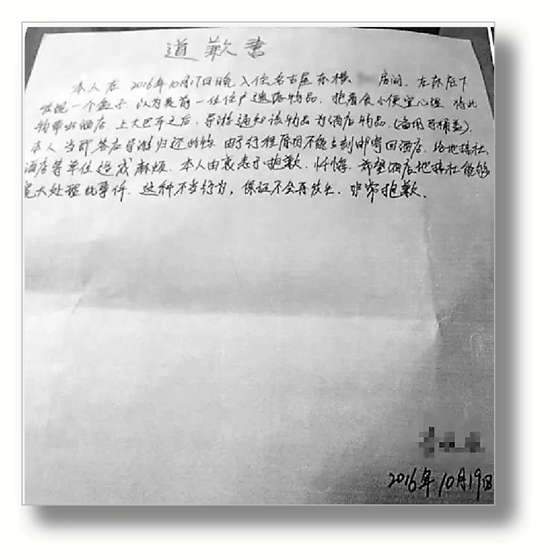 道歉書
本人在2016年10月17日晚入住名古屋东横 房间,在床底下
发现一个盒子,以为是前一任住户遗留物品,抱着贪小便宜心理,将此
物带出酒店,上大巴车之后,导游通知该物品为酒店物品。(智用马桶盖)
本人当即答应导游归还此物,由于行程原因不能立刻邮寄回酒店,给地接社,
酒店等单位造成麻烦,本人由衷表示抱歉,忏悔,希望酒店地接社能够
宽大处理此事件,这种不当行为,保证不会再发生,非常抱歉。
2016年10月19日